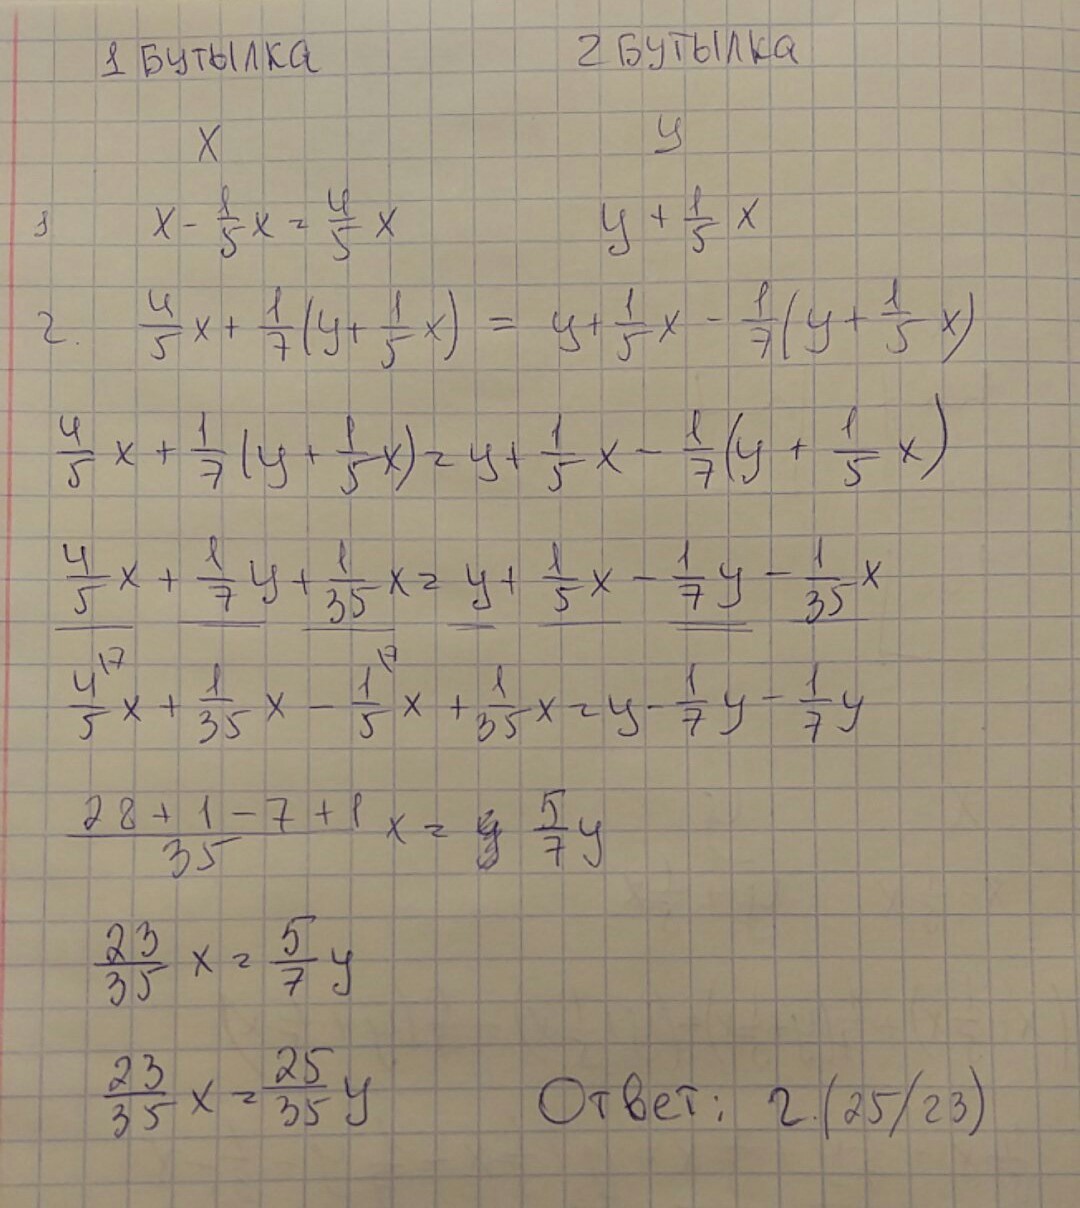 1 БУТЫЛКА 2 БУТЫЛКА
x y
1 x - 1/5 x = 4/5 x y + 1/5 x
2. 4/5 x + 1/7 (y + 1/5 x) = y + 1/5 x - 1/7 (y + 1/5 x)
4/5 x + 1/7 (y + 1/5 x) = y + 1/5 x - 1/7 (y + 1/5 x)
4/5 x + 1/7 y + 1/35 x = y + 1/5 x - 1/7 y - 1/35 x
4\7/5 x + 1/35 x - 1\7/5 x + 1/35 x = y - 1/7 y - 1/7 y
28 + 1 - 7 + 1/35 x = 5/7 y
23/35 x = 5/7 y
23/35 x = 25/35 y Ответ: 2.(25/23)